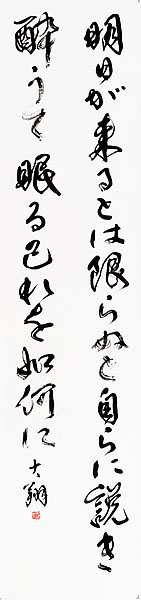 明日が来るとは限らぬと自らに説き
酔うて眠る己れを如何に
大翔